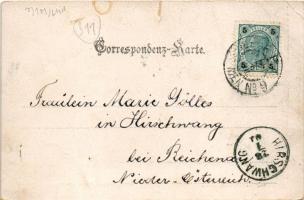 Correspondenz-Karte.
Fräulein Marie Gölles
in Hirschwang
bei Reichenau
Nieder-Österreich.
HIRSCHWANG